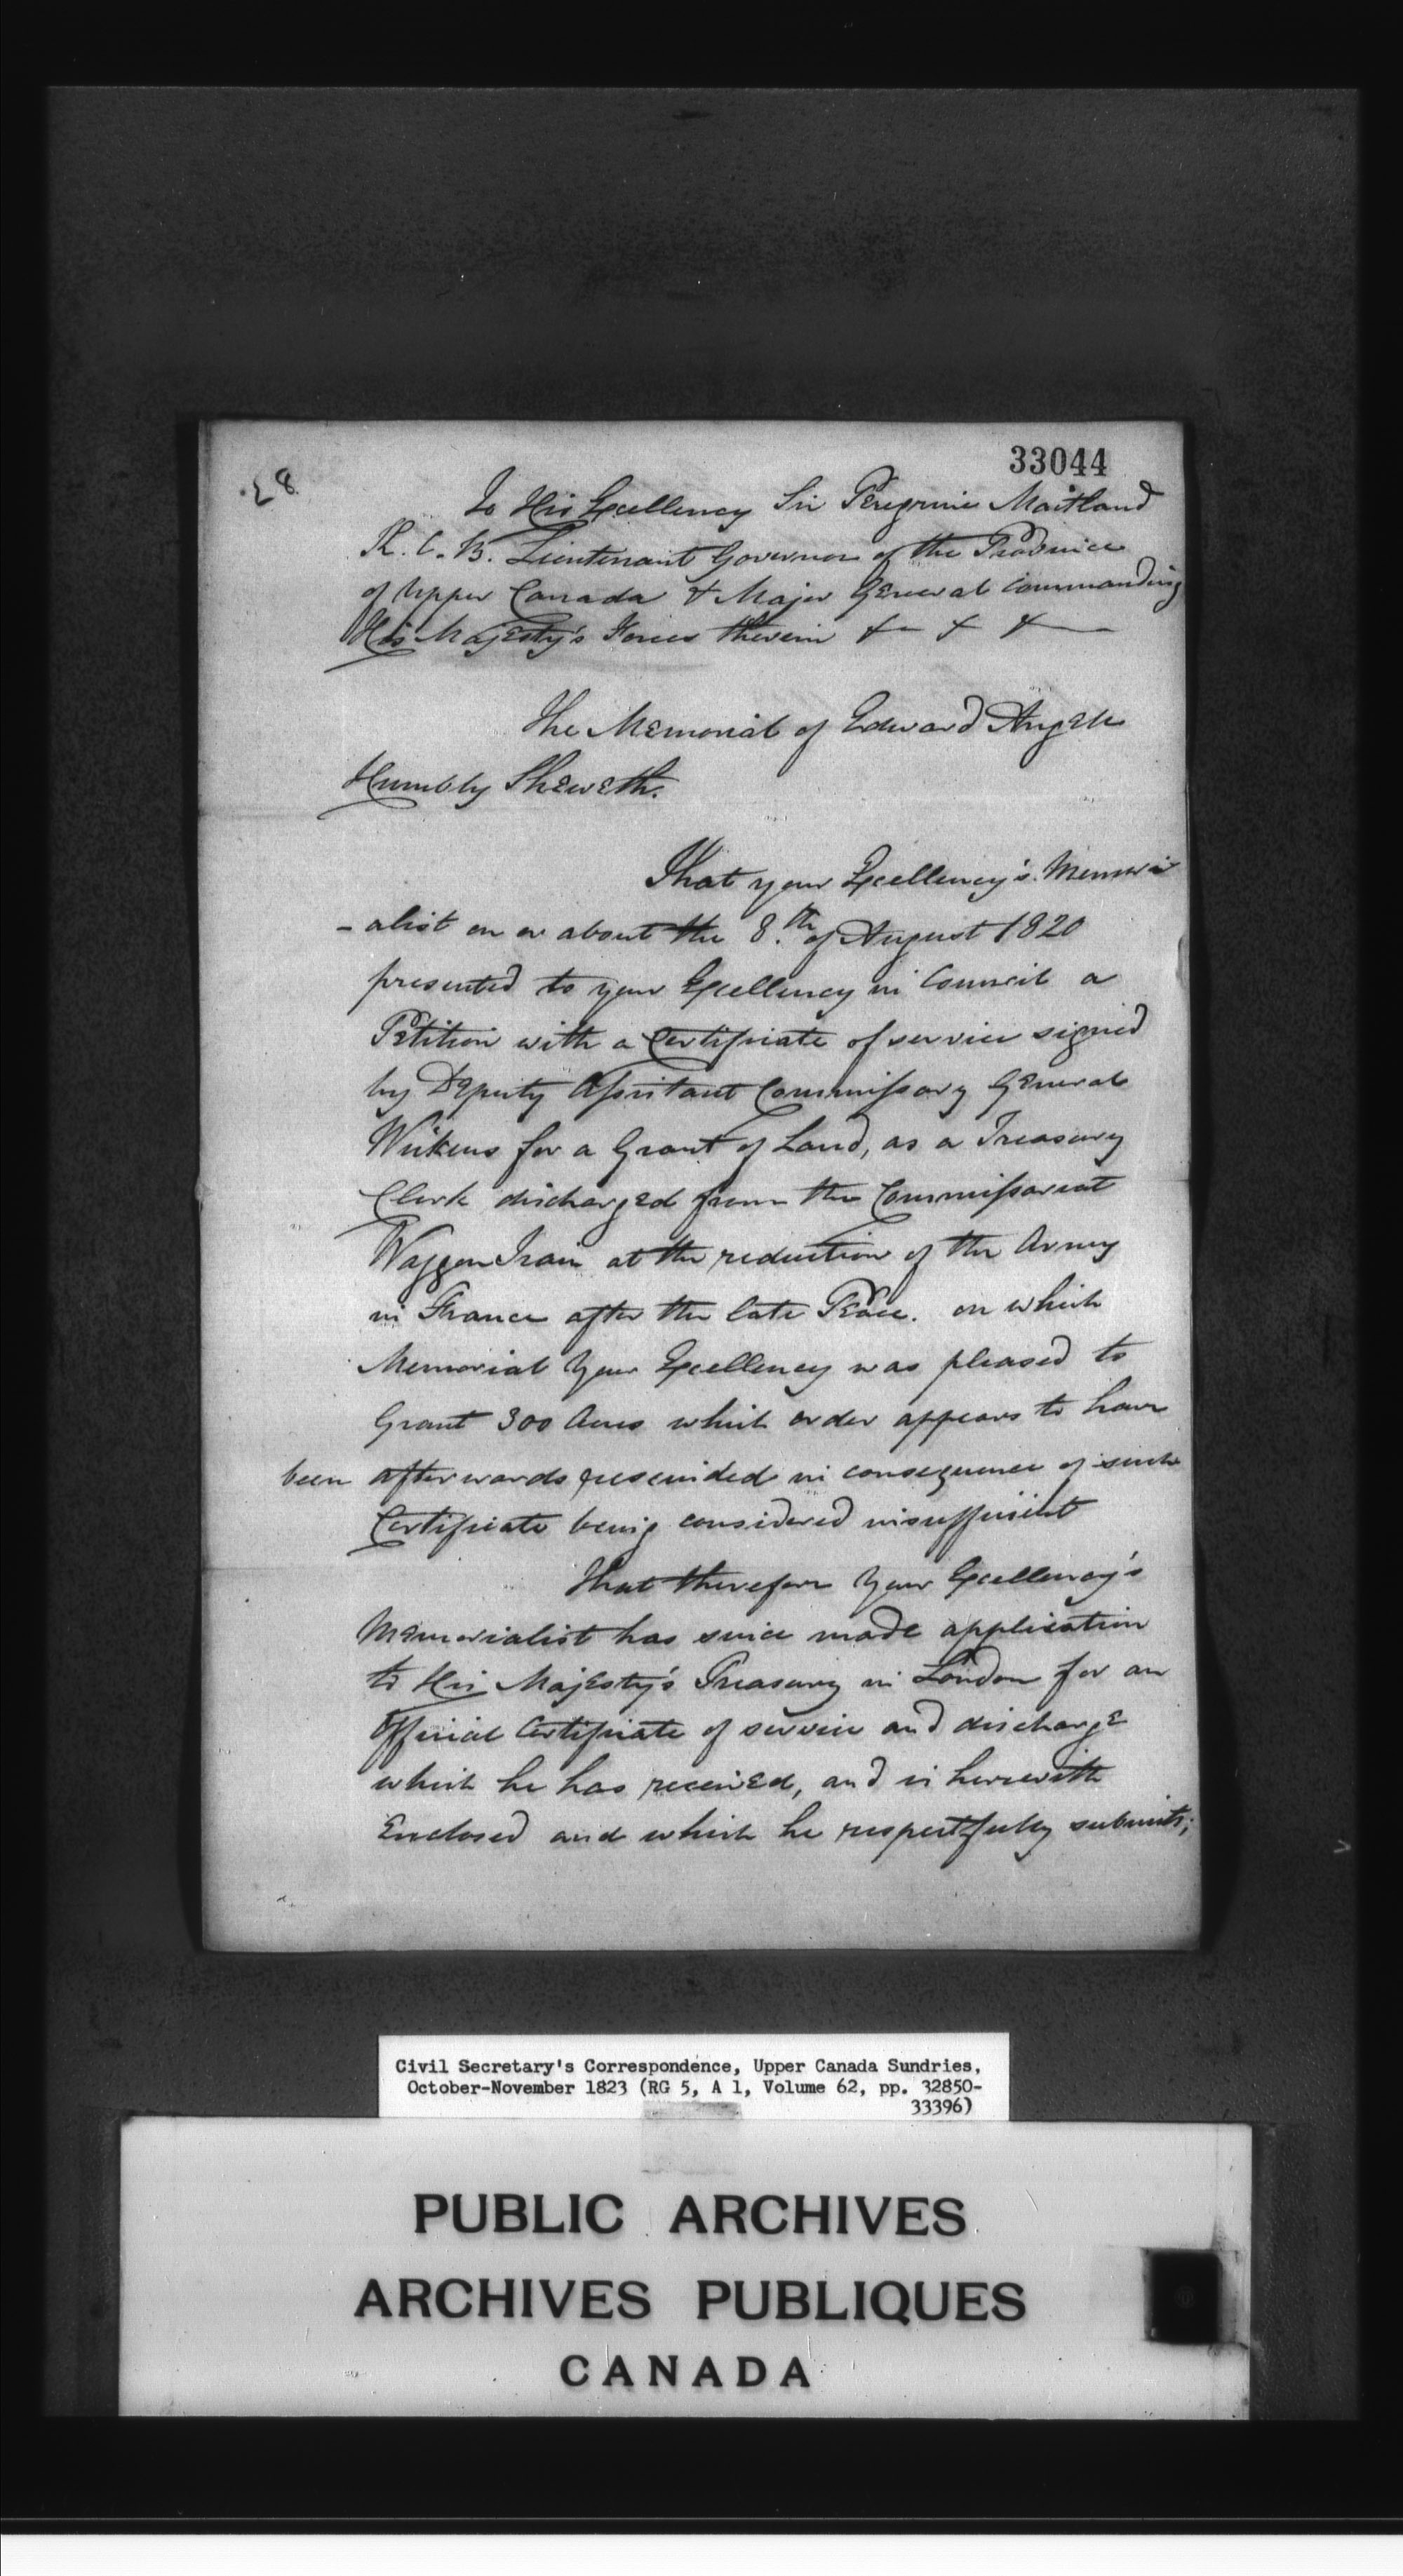 33044
L 8
To His Excellency Sir Peregrine Maitland
K. C. B. Lieutenant Governor of the Province
of Upper Canada & Major General Commanding
His Majesty's Forces therein &c &c &c
The Memorial of Edward Angell
Humbly Sheweth.
That your Excellency's Memori
-alist on or about the 8.th of August 1820
presented to your Excellency in Council a
Petition with a Certificate of service signed
by Deputy Assistant Commissary General
for a Grant of Land, as a Treasury
Clerk discharged from the Commissariat
Waggon Train at the reduction of the Army
in France after the late Peace. on which
Memorial Your Excellency was pleased to
Grant 300 Acres which order appears to have
been afterwards rescinded in consequence of such
Certificate being considered insufficient
That therefore Your Excellency's
Memorialist has since made application
to His Majesty's Treasury in London for an
Official Certificate of service and discharge
which he has received, and is herewith
Enclosed and which he respectfully submits;
Civil Secretary's Correspondence, Upper Canada Sundries,
October-November 1823 (RG 5, A 1, Volume 62, pp. 32850-
33396)
PUBLIC ARCHIVES
ARCHIVES PUBLIQUES
CANADA